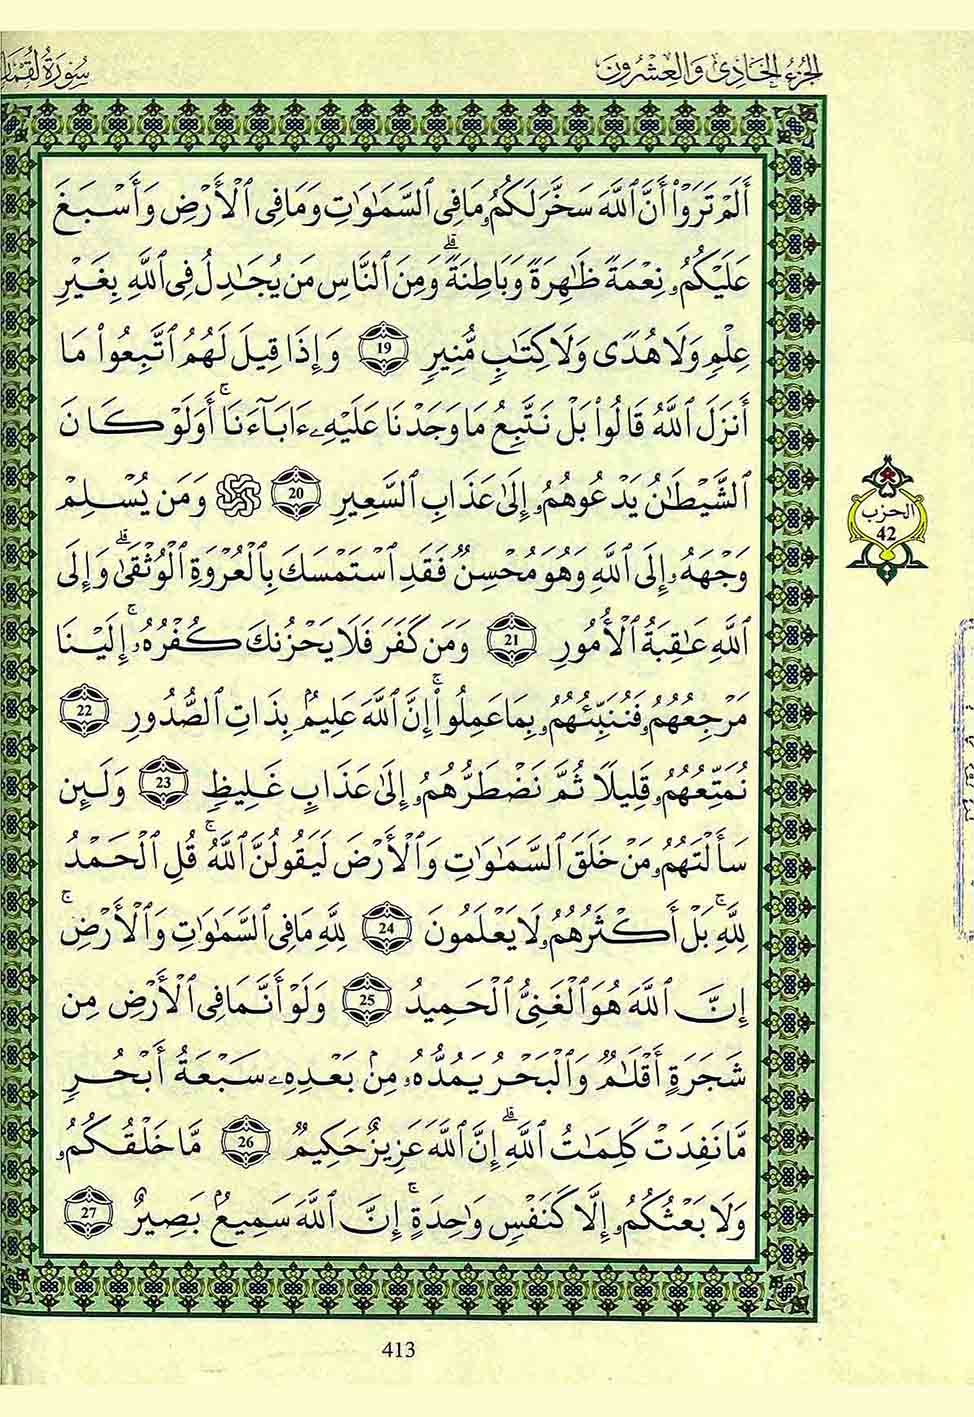 الجزء الحادي والعشرون
سورة لقمان
أَلَمْ تَرَوْا۟ أَنَّ ٱللَّهَ سَخَّرَ لَكُمُۥ مَا فِى ٱلسَّمَٰوَٰتِ وَمَا فِى ٱلْأَرْضِ وَأَسْبَغَ
عَلَيْكُمُۥ نِعْمَةً ظَٰهِرَةً وَبَاطِنَةً ۗ وَمِنَ ٱلنَّاسِ مَن يُجَٰدِلُ فِى ٱللَّهِ بِغَيْرِ
عِلْمٍ وَلَا هُدًى وَلَا كِتَٰبٍ مُّنِيرٍ 19 وَإِذَا قِيلَ لَهُمُ ٱتَّبِعُوا۟ مَا
أَنزَلَ ٱللَّهُ قَالُوا۟ بَلْ نَتَّبِعُ مَا وَجَدْنَا عَلَيْهِۦ ءَابَآءَنَا ۚ أَوَلَوْ كَانَ
ٱلشَّيْطَٰنُ يَدْعُوهُمُۥ إِلَىٰ عَذَابِ ٱلسَّعِيرِ 20 وَمَن يُسْلِمْ
وَجْهَهُۥ إِلَى ٱللَّهِ وَهُوَ مُحْسِنٌ فَقَدِ ٱسْتَمْسَكَ بِٱلْعُرْوَةِ ٱلْوُثْقَىٰ ۗ وَإِلَى
ٱللَّهِ عَٰقِبَةُ ٱلْأُمُورِ 21 وَمَن كَفَرَ فَلَا يَحْزُنكَ كُفْرُهُۥ ۚ إِلَيْنَا
مَرْجِعُهُمُۥ فَنُنَبِّئُهُمُۥ بِمَا عَمِلُوا۟ ۚ إِنَّ ٱللَّهَ عَلِيمٌۢ بِذَاتِ ٱلصُّدُورِ 22
نُمَتِّعُهُمُۥ قَلِيلًا ثُمَّ نَضْطَرُّهُمُۥ إِلَىٰ عَذَابٍ غَلِيظٍ 23 وَلَئِن
سَأَلْتَهُمُۥ مَنْ خَلَقَ ٱلسَّمَٰوَٰتِ وَٱلْأَرْضَ لَيَقُولُنَّ ٱللَّهُ ۚ قُلِ ٱلْحَمْدُ
لِلَّهِ ۚ بَلْ أَكْثَرُهُمُۥ لَا يَعْلَمُونَ 24 لِلَّهِ مَا فِى ٱلسَّمَٰوَٰتِ وَٱلْأَرْضِ ۚ
إِنَّ ٱللَّهَ هُوَ ٱلْغَنِىُّ ٱلْحَمِيدُ 25 وَلَوْ أَنَّمَا فِى ٱلْأَرْضِ مِن
شَجَرَةٍ أَقْلَٰمٌ وَٱلْبَحْرُ يَمُدُّهُۥ مِنۢ بَعْدِهِۦ سَبْعَةُ أَبْحُرٍ
مَّا نَفِدَتْ كَلِمَٰتُ ٱللَّهِ ۗ إِنَّ ٱللَّهَ عَزِيزٌ حَكِيمٌ 26 مَّا خَلْقُكُمُۥ
وَلَا بَعْثُكُمُۥ إِلَّا كَنَفْسٍ وَٰحِدَةٍ ۚ إِنَّ ٱللَّهَ سَمِيعٌۢ بَصِيرٌ 27
الحزب
42
413